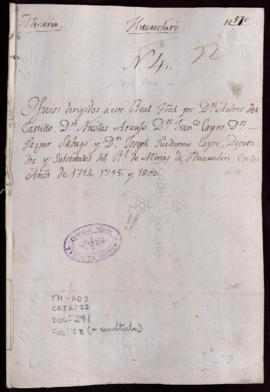 Mineria Huarochiri
N 4.
32
Oficios dirigidos a este Rl Tral por Dn Andres del
Castillo Dn Nicolas Araujo Dn Franco Cayro, Dn
Gaspar Sabugo y Dn Joseph Guillermo Cayro, Diputa
dos y Substitutos del Rl de Minas de Huarochiri. En los
Años de 1794. 1795. y 1800.
TM-AD3
CAJA: 32
DOC: 291
FOL: 58 (+ carátula)